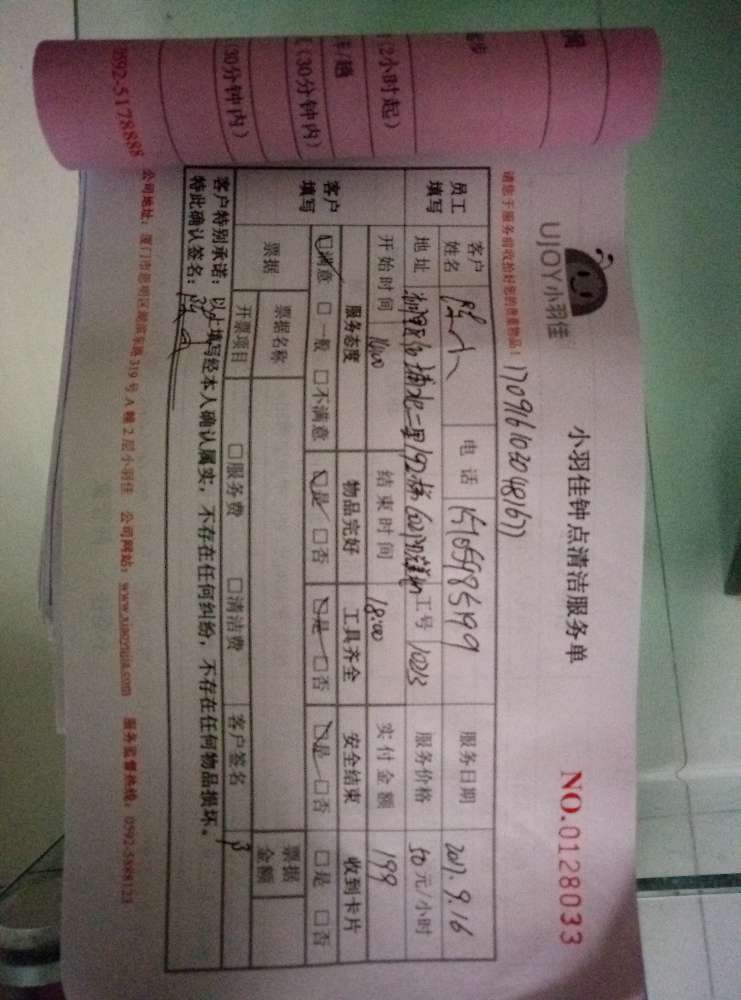 UJOY小羽佳
小羽佳钟点清洁服务单
NO.0128033
请您于服务前收拾好您的贵重物品！
1709161030481677
员工填写
客户姓名
电话
服务日期 2017.9.16
地址
工号 10213
服务价格 50元/小时
开始时间
结束时间 18:00
实付金额 199
客户填写
服务态度 物品完好 工具齐全 安全结束 收到卡片
□满意 □一般 □不满意 □是 □否 □是 □否 □是 □否 □是 □否
票据
票据名称
票据金额
开票项目 □服务费 □清洁费 客户签名
客户特别承诺：以上填写经本人确认属实，不存在任何纠纷，不存在任何物品损坏。
特此确认签名：
公司地址：厦门市思明区湖滨东路319号A幢2层小羽佳 公司网站：www.xiaoyujia.com 服务监督热线：0592-5888123
2小时起）
（30分钟内）
30分钟内）
0592-5178888